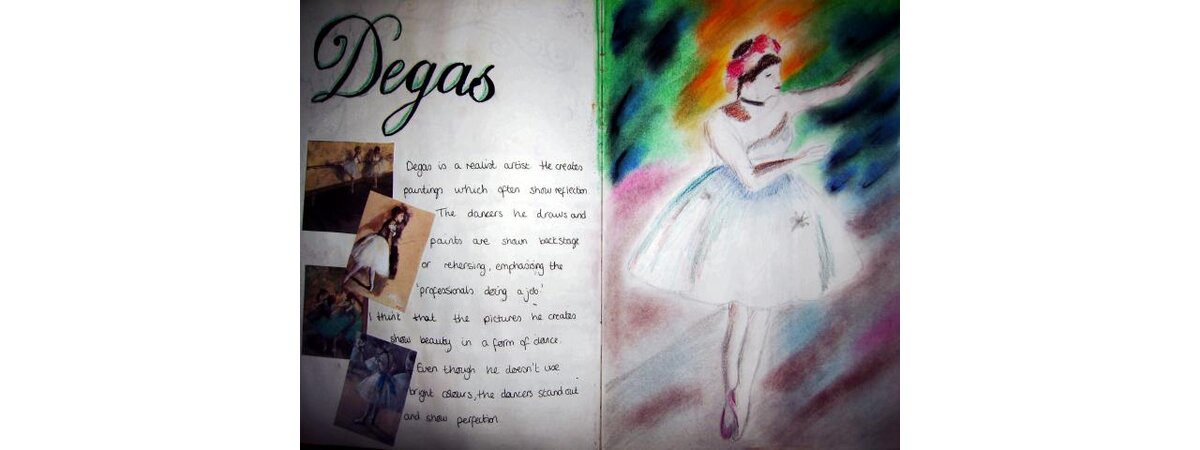 Degas
Degas is a realist artist. He creates
paintings which often show reflection
The dancers he draws and
paints are shown backstage
or rehersing, emphasising the
'professionals doing a job.'
I think that the pictures he creates
show beauty in a form of dance.
Even though he doesn't use
bright colours, the dancers stand out
and show perfection